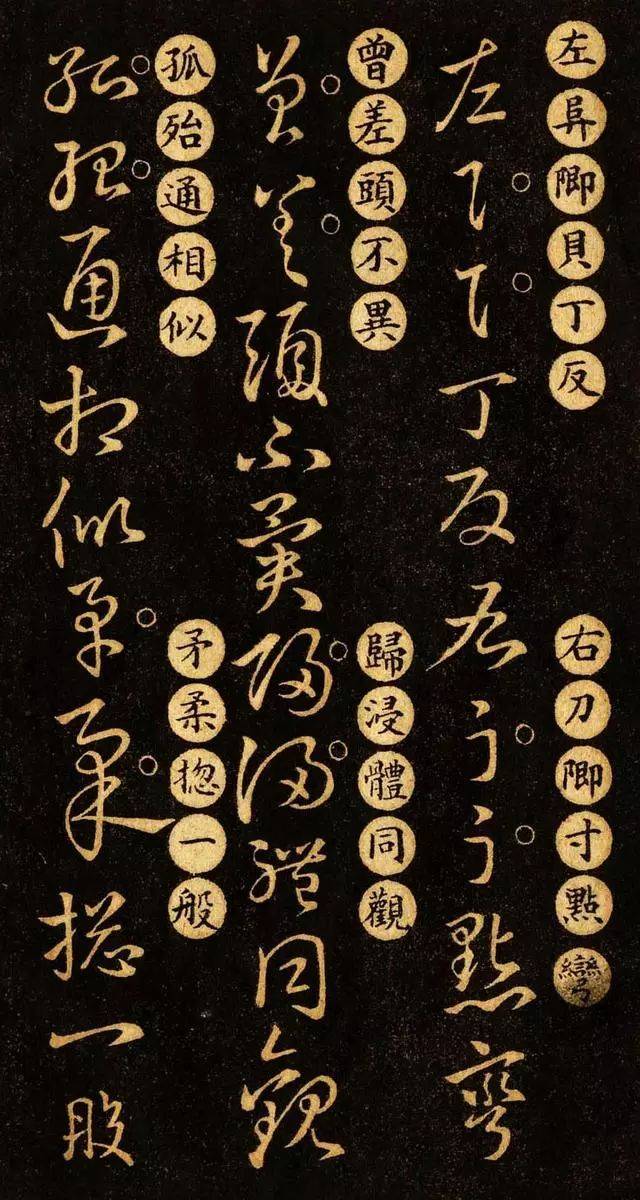 左阜即貝丁反
右刀即寸點彎
左阜貝丁反右刀寸點彎
曾差頭不異
歸浸體同觀
曾差頭不異歸浸體同觀
孤殆通相似
矛柔揔一般
孤殆通相似矛柔揔一般